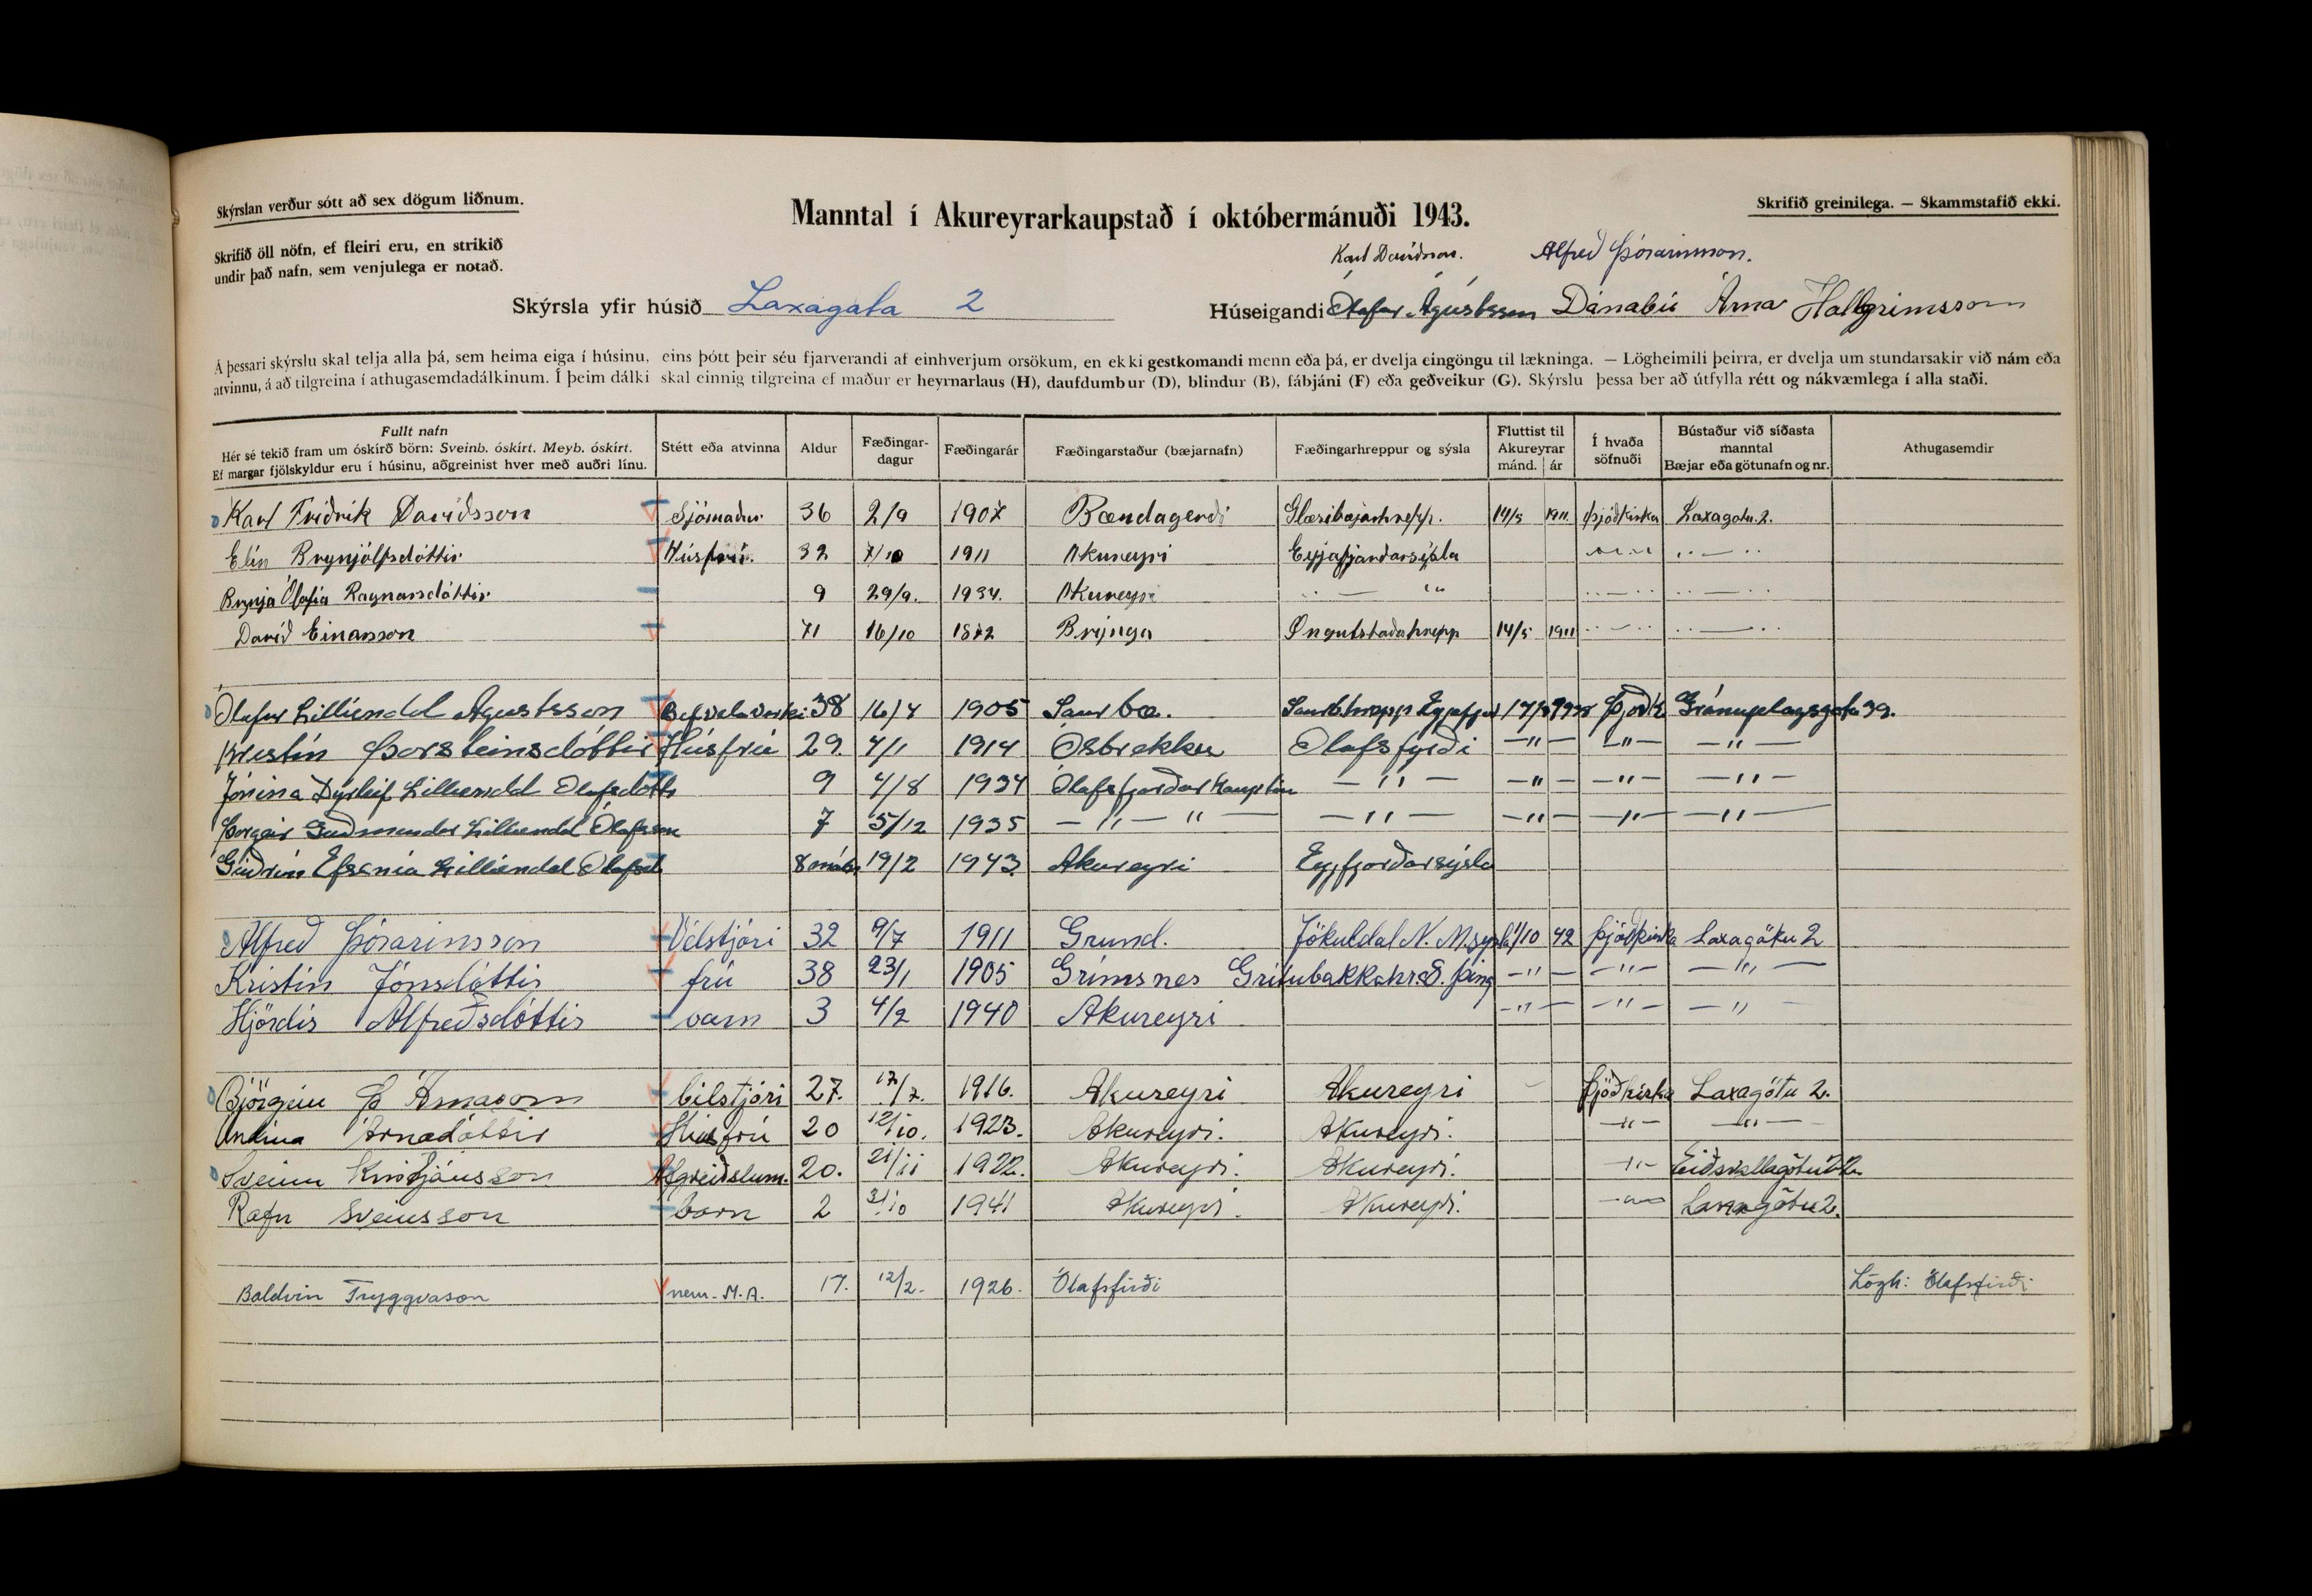 Skýrslan verður sótt að sex dögum liðnum.
Manntal í Akureyrarkaupstað í októbermánuði 1943.
Skrifið greinilega. — Skammstafið ekki.
Skrifið öll nöfn, ef fleiri eru, en strikið
undir það nafn, sem venjulega er notað.
Karl Davíðsson. Alfreð Þórarinsson.
Skýrsla yfir húsið Laxagata 2
Húseigandi Ólafur Ágústsson Dánabú Árna Hallgrímsson
Á þessari skýrslu skal telja alla þá, sem heima eiga í húsinu, eins þótt þeir séu fjarverandi af einhverjum orsökum, en ekki gestkomandi menn eða þá, er dvelja eingöngu til lækninga. — Lögheimili þeirra, er dvelja um stundarsakir við nám eða
atvinnu, á að tilgreina í athugasemdadálkinum. Í þeim dálki skal einnig tilgreina ef maður er heyrnarlaus (H), daufdumbur (D), blindur (B), fábjáni (F) eða geðveikur (G). Skýrslu þessa ber að útfylla rétt og nákvæmlega í alla staði.
Fullt nafn
Hér sé tekið fram um óskírð börn: Sveinb. óskírt. Meyb. óskírt.
Ef margar fjölskyldur eru í húsinu, aðgreinist hver með auðri línu.
Stétt eða atvinna
Aldur
Fæðingar-
dagur
Fæðingarár
Fæðingarstaður (bæjarnafn)
Fæðingarhreppur og sýsla
Fluttist til
Akureyrar
mánd. ár
Í hvaða
söfnuði
Bústaður við síðasta
manntal
Bæjar eða götunafn og nr.
Athugasemdir
Karl Friðrik Davíðsson Sjómaður 36 2/9 1907 Bændagerði Glæsibæjarhrepp. 14/5 1911 Þjóðkirkja Laxagötu 2.
Elín Brynjólfsdóttir Húsfrú. 32 7/10 1911 Akureyri Eyjafjarðarsýsla
Brynja Ólafía Ragnarsdóttir 9 29/9. 1934. Akureyri
Davíð Einarsson 71 16/10 1872 Brýnga Öngulstaðahrepp 14/5 1911
Ólafur Lilliendal Ágústsson 38 16/4 1905 Saurbæ. Saurb.hrepp Þjóðk. Gránufelagsgötu 39.
Kristín Þorsteinsdóttir Húsfrú 29. 4/1 1914 Ósbrekku Ólafsfyrði —"— —"— —"—
Jónína Dýrleif Lilliendal Olafsdótt 9 4/8 1934 Ólafsfjorðar Kauptún —"— —"— —"— —"—
Þorgeir Guðmundur Lilliendal Ólafsson 7 5/12 1935 —"—"— —"— —"— —"— —"—
Guðrún Efsenía Lilliendal Olafsd 8 mánb. 19/2 1943. Akureyri Eyjfjorðarsýsla
Alfreð Þórarinsson Vélstjóri 32 9/7 1911 Grund. Jökuldal N. M.sysla 1/10 42 Þjóðkirkja Laxagötu 2
Kristín Jónsdóttir frú 38 23/1 1905 Grímsnes Grítubakkahr. S. Þing —"— —"— —"—
Hjördís Alfreðsdóttir barn 3 4/2 1940 Akureyri —"— —"— —"
Björgvin Þ Árnason bílstjóri 27. 17/7. 1916. Akureyri Akureyri Þjóðkirkja Laxagötu 2.
Undína Árnadóttir Húsfrú 20 12/10. 1923. Akureyri. Akureyri. —"— —"—
Sveinn Kristjánsson Afgreiðslum. 20. 21/11 1922. Akureyri. Akureyri. —"— Eiðsvallagötu
Rafn Sveinsson barn 2 31/10 1941 Akureyri. Akureyri. —"— Laxagötu 2.
Baldvin Tryggvason nem. M.A. 17. 12/2. 1926. Ólafsfirði Lögh: Ólafsfirði